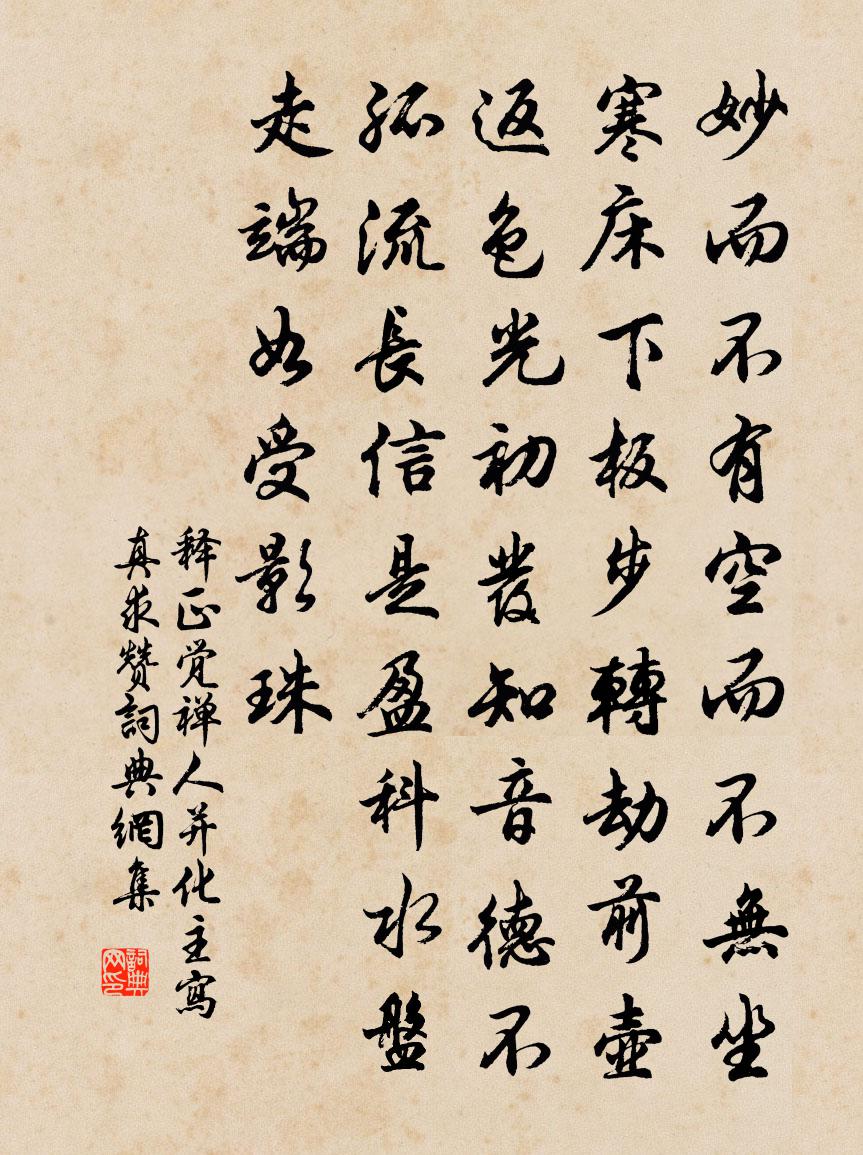 妙而不有空而不無坐
寒床下板步轉劫前壺
返色光初發知音德不
孤流長信是盈科水盤
走端如受影珠
释正覚禅人并化主寫
真求赞詞典網集
詞典网印